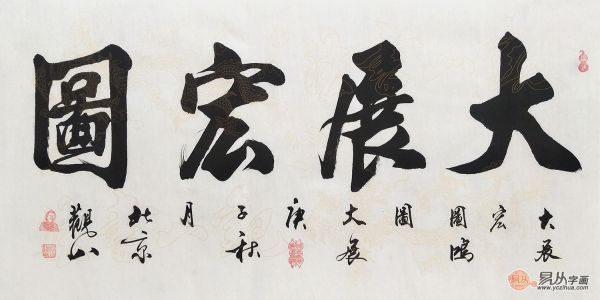 大展宏圖
大展
宏
圖鴻
圖
大展
庚
子秋
月
北京
觀
易从字画
www.yczihua.com